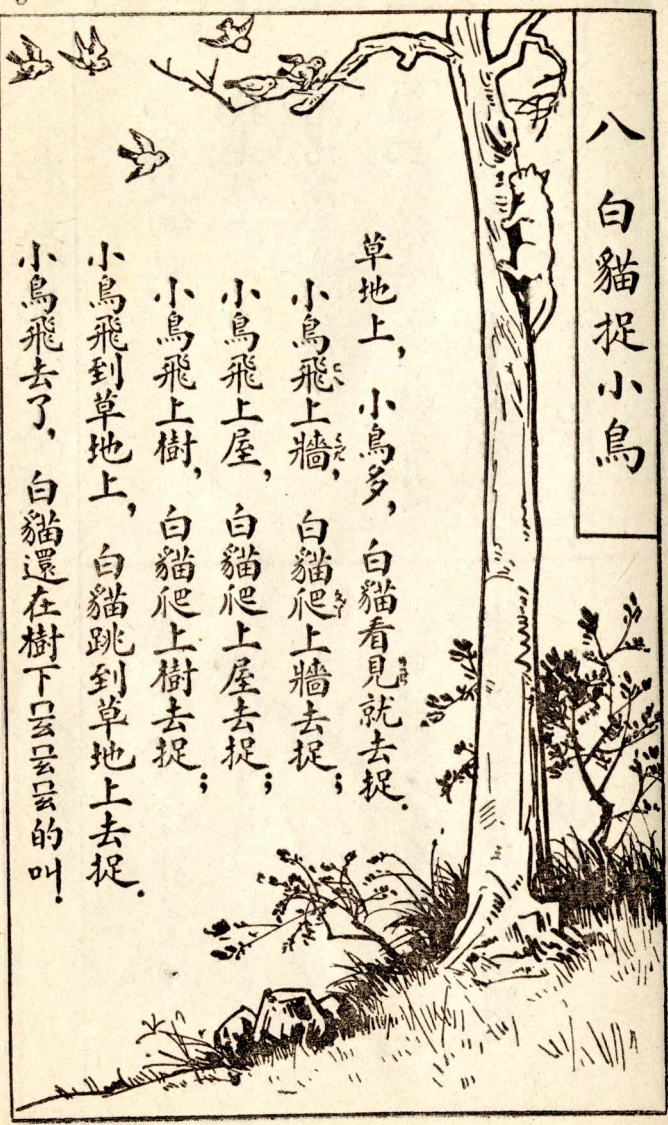 八 白貓捉小鳥
草地上，小鳥多，白貓看見就去捉．
小鳥飛上牆，白貓爬上牆去捉；
小鳥飛上屋，白貓爬上屋去捉；
小鳥飛上樹，白貓爬上樹去捉；
小鳥飛到草地上，白貓跳到草地上去捉．
小鳥飛去了，白貓還在樹下ㄇㄠㄇㄠㄇㄠ的叫．